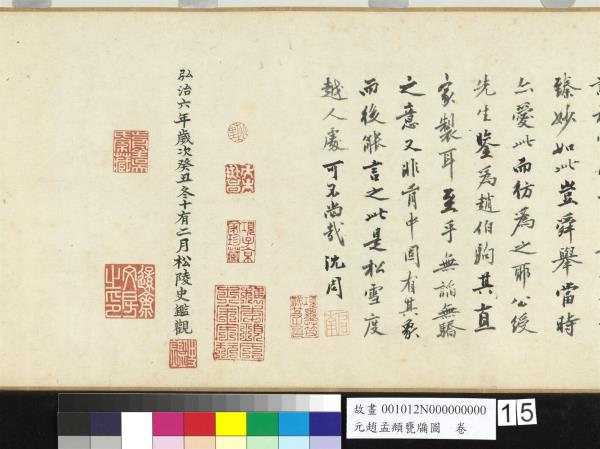 臻妙如此豈舜舉當時
亦愛此而彷為之耶公綬
先生鑒為趙伯駒其直
家製耳至乎無諂無驕
之意又非胷中固有其象
而後能言之此是松雪度
越人處可不尚哉沈周
弘治六年歲次癸丑冬十有二月松陵史鑑觀
故畫 001012N000000000
元趙孟頫甕牖圖 卷
15